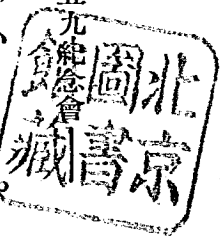 北京
圖書
館藏
九紀念會